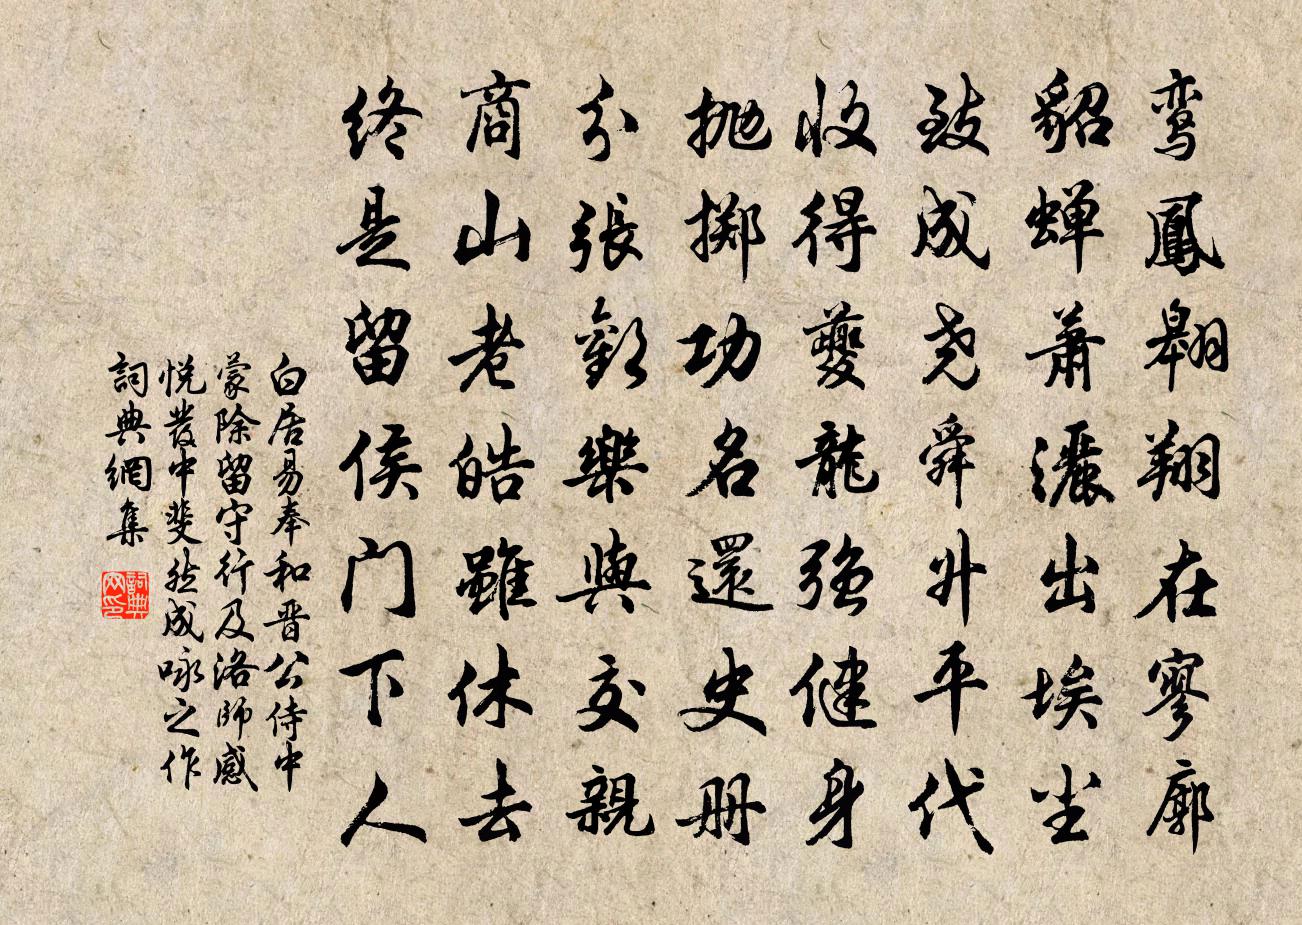 鸾鳳翱翔在寥廓
貂蝉萧灑出埃尘
致成尧舜升平代
收得夔龍强健身
抛掷功名還史册
分張歡樂與交親
商山老皓雖休去
终是留侯门下人
白居易奉和晋公侍中
蒙除留守行及洛師感
悦發中斐然成咏之作
詞典網集
詞典
网印